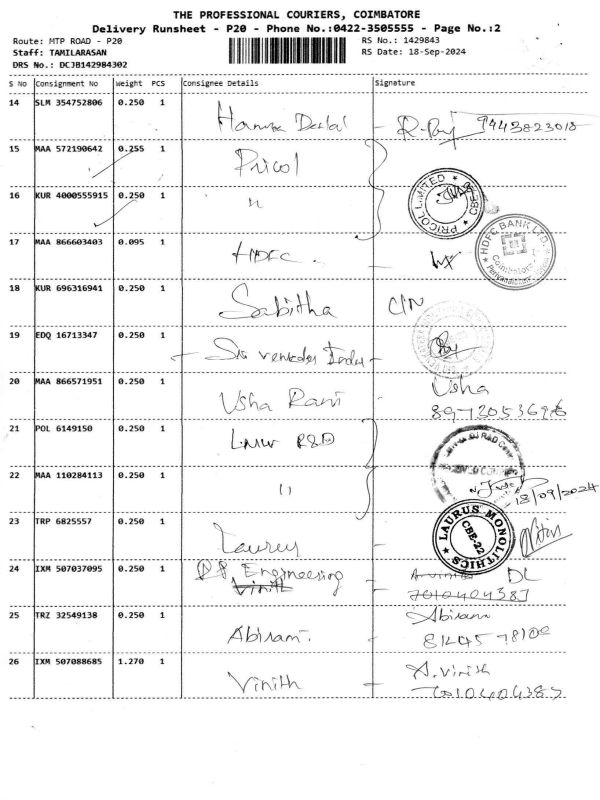 THE PROFESSIONAL COURIERS, COIMBATORE
Delivery Runsheet - P20 - Phone No.:0422-3505555 - Page No.:2
Route: MTP ROAD - P20 RS No.: 1429843
Staff: TAMILARASAN RS Date: 18-Sep-2024
DRS No.: DCJB142984302
S No Consignment No Weight PCS Consignee Details Signature
14 SLM 354752806 0.250 1 9443823018
15 MAA 572190642 0.255 1 Pricol
PRICOL LIMITED CBE
16 KUR 4000555915 0.250 1 "
HDFC BANK LTD.
Coimbatore
17 MAA 866603403 0.095 1 HDFC.
18 KUR 696316941 0.250 1 Sabitha C/N
19 EDQ 16713347 0.250 1 Sri
20 MAA 866571951 0.250 1 Usha Rani - Usha
21 POL 6149150 0.250 1 LMW R&D
22 MAA 110284113 0.250 1 "
18/09/2024
23 TRP 6825557 0.250 1
LAURUS MONOLITHICS CBE-22
24 IXM 507037095 0.250 1 Engineering DL
Vinith 7010404387
25 TRZ 32549138 0.250 1 Abirami. - Abirami
26 IXM 507088685 1.270 1 Vinith - A.Vinith
7010404387